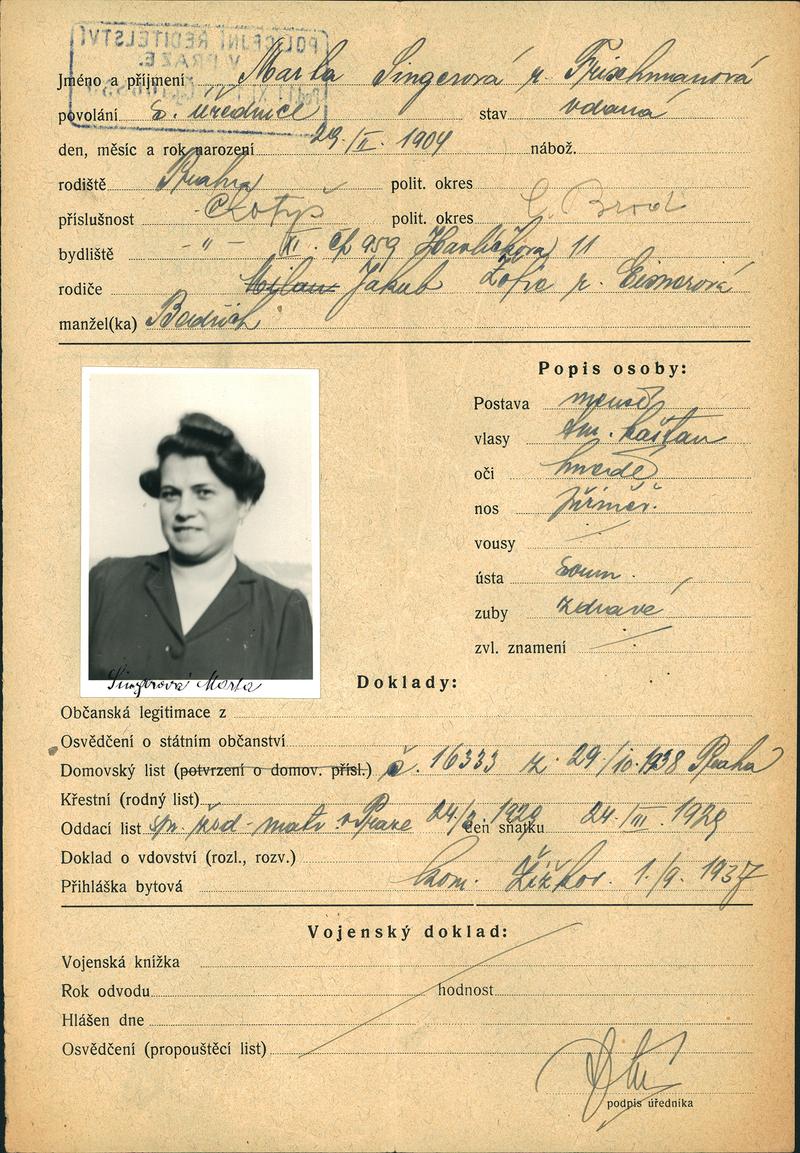 POLICEJNÍ ŘEDITELSTVÍ
V PRAZE.
Jméno a příjmení Marta Singerová r. Frischmanová
povolání s. úřednice stav vdaná
den, měsíc a rok narození 29/II. 1904 nábož.
rodiště Praha polit. okres
příslušnost Chotýš polit. okres Č. Brod
bydliště -"- XI. čp 959 Havlíčkova 11
rodiče Milan Jakub Žofie r. Eisnerová
manžel(ka) Bedřich
Popis osoby:
Postava menší
vlasy tm. kaštan
oči hnědé
nos přiměř.
vousy
ústa soum.
zuby zdravé
zvl. znamení
Singerová Marta
Doklady:
Občanská legitimace z
Osvědčení o státním občanství
Domovský list (potvrzení o domov. přísl.) č. 16333 z 29/10. 1938 Praha
Křestní (rodný list)
Oddací list v Praze 1929 den sňatku 24./III. 1929
Doklad o vdovství (rozl., rozv.)
Přihláška bytová kom. Žižkov. 1./9. 1937
Vojenský doklad:
Vojenská knížka
Rok odvodu hodnost
Hlášen dne
Osvědčení (propouštěcí list)
podpis úředníka